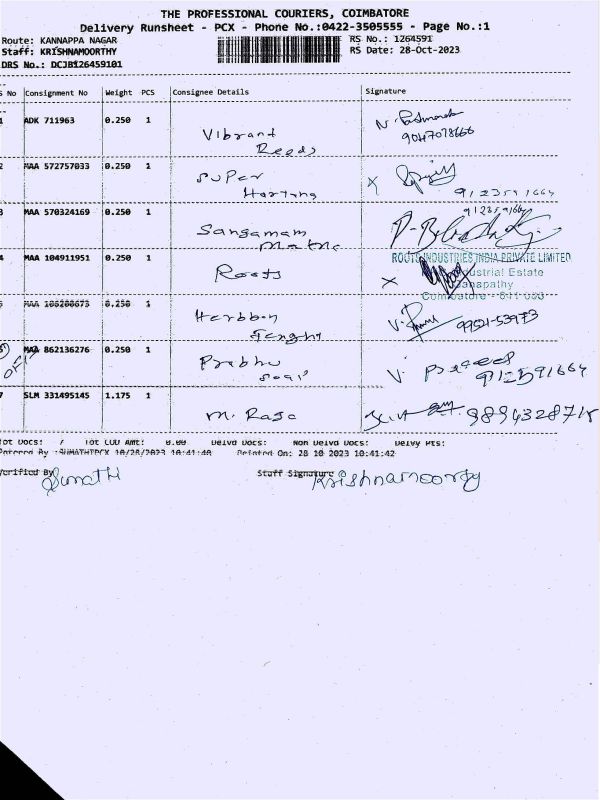 THE PROFESSIONAL COURIERS, COIMBATORE
Delivery Runsheet - PCX - Phone No.:0422-3505555 - Page No.:1
Route: KANNAPPA NAGAR RS No.: 1264591
Staff: KRISHNAMOORTHY RS Date: 28-Oct-2023
DRS No.: DCJB126459101
S No Consignment No Weight PCS Consignee Details Signature
1 ADK 711963 0.250 1
Vibrand
Reeds
9047078666
2 MAA 572757033 0.250 1 Super
Hartang
9123591664
3 MAA 570324169 0.250 1 Sangamam
912359166
4 MAA 104911951 0.250 1 Roots
ROOTS INDUSTRIES INDIA PRIVATE LIMITED
Industrial Estate
Ganapathy
Coimbatore - 641 006
5 MAA 0.250 1
6 MAA 862136276 0.250 1 Prabhu
Soap
912591664
7 SLM 331495145 1.175 1
M. Raja
9894328718
Tot Docs: 7 Tot COD Amt: 0.00 Delvd Docs: Non Delvd Docs: Delvy Pts:
Entered By :SUMATHIPCX 10/28/2023 10:41:40 Printed On: 28 10 2023 10:41:42
Verified By Sumathi Staff Signature Krishnamoorthy